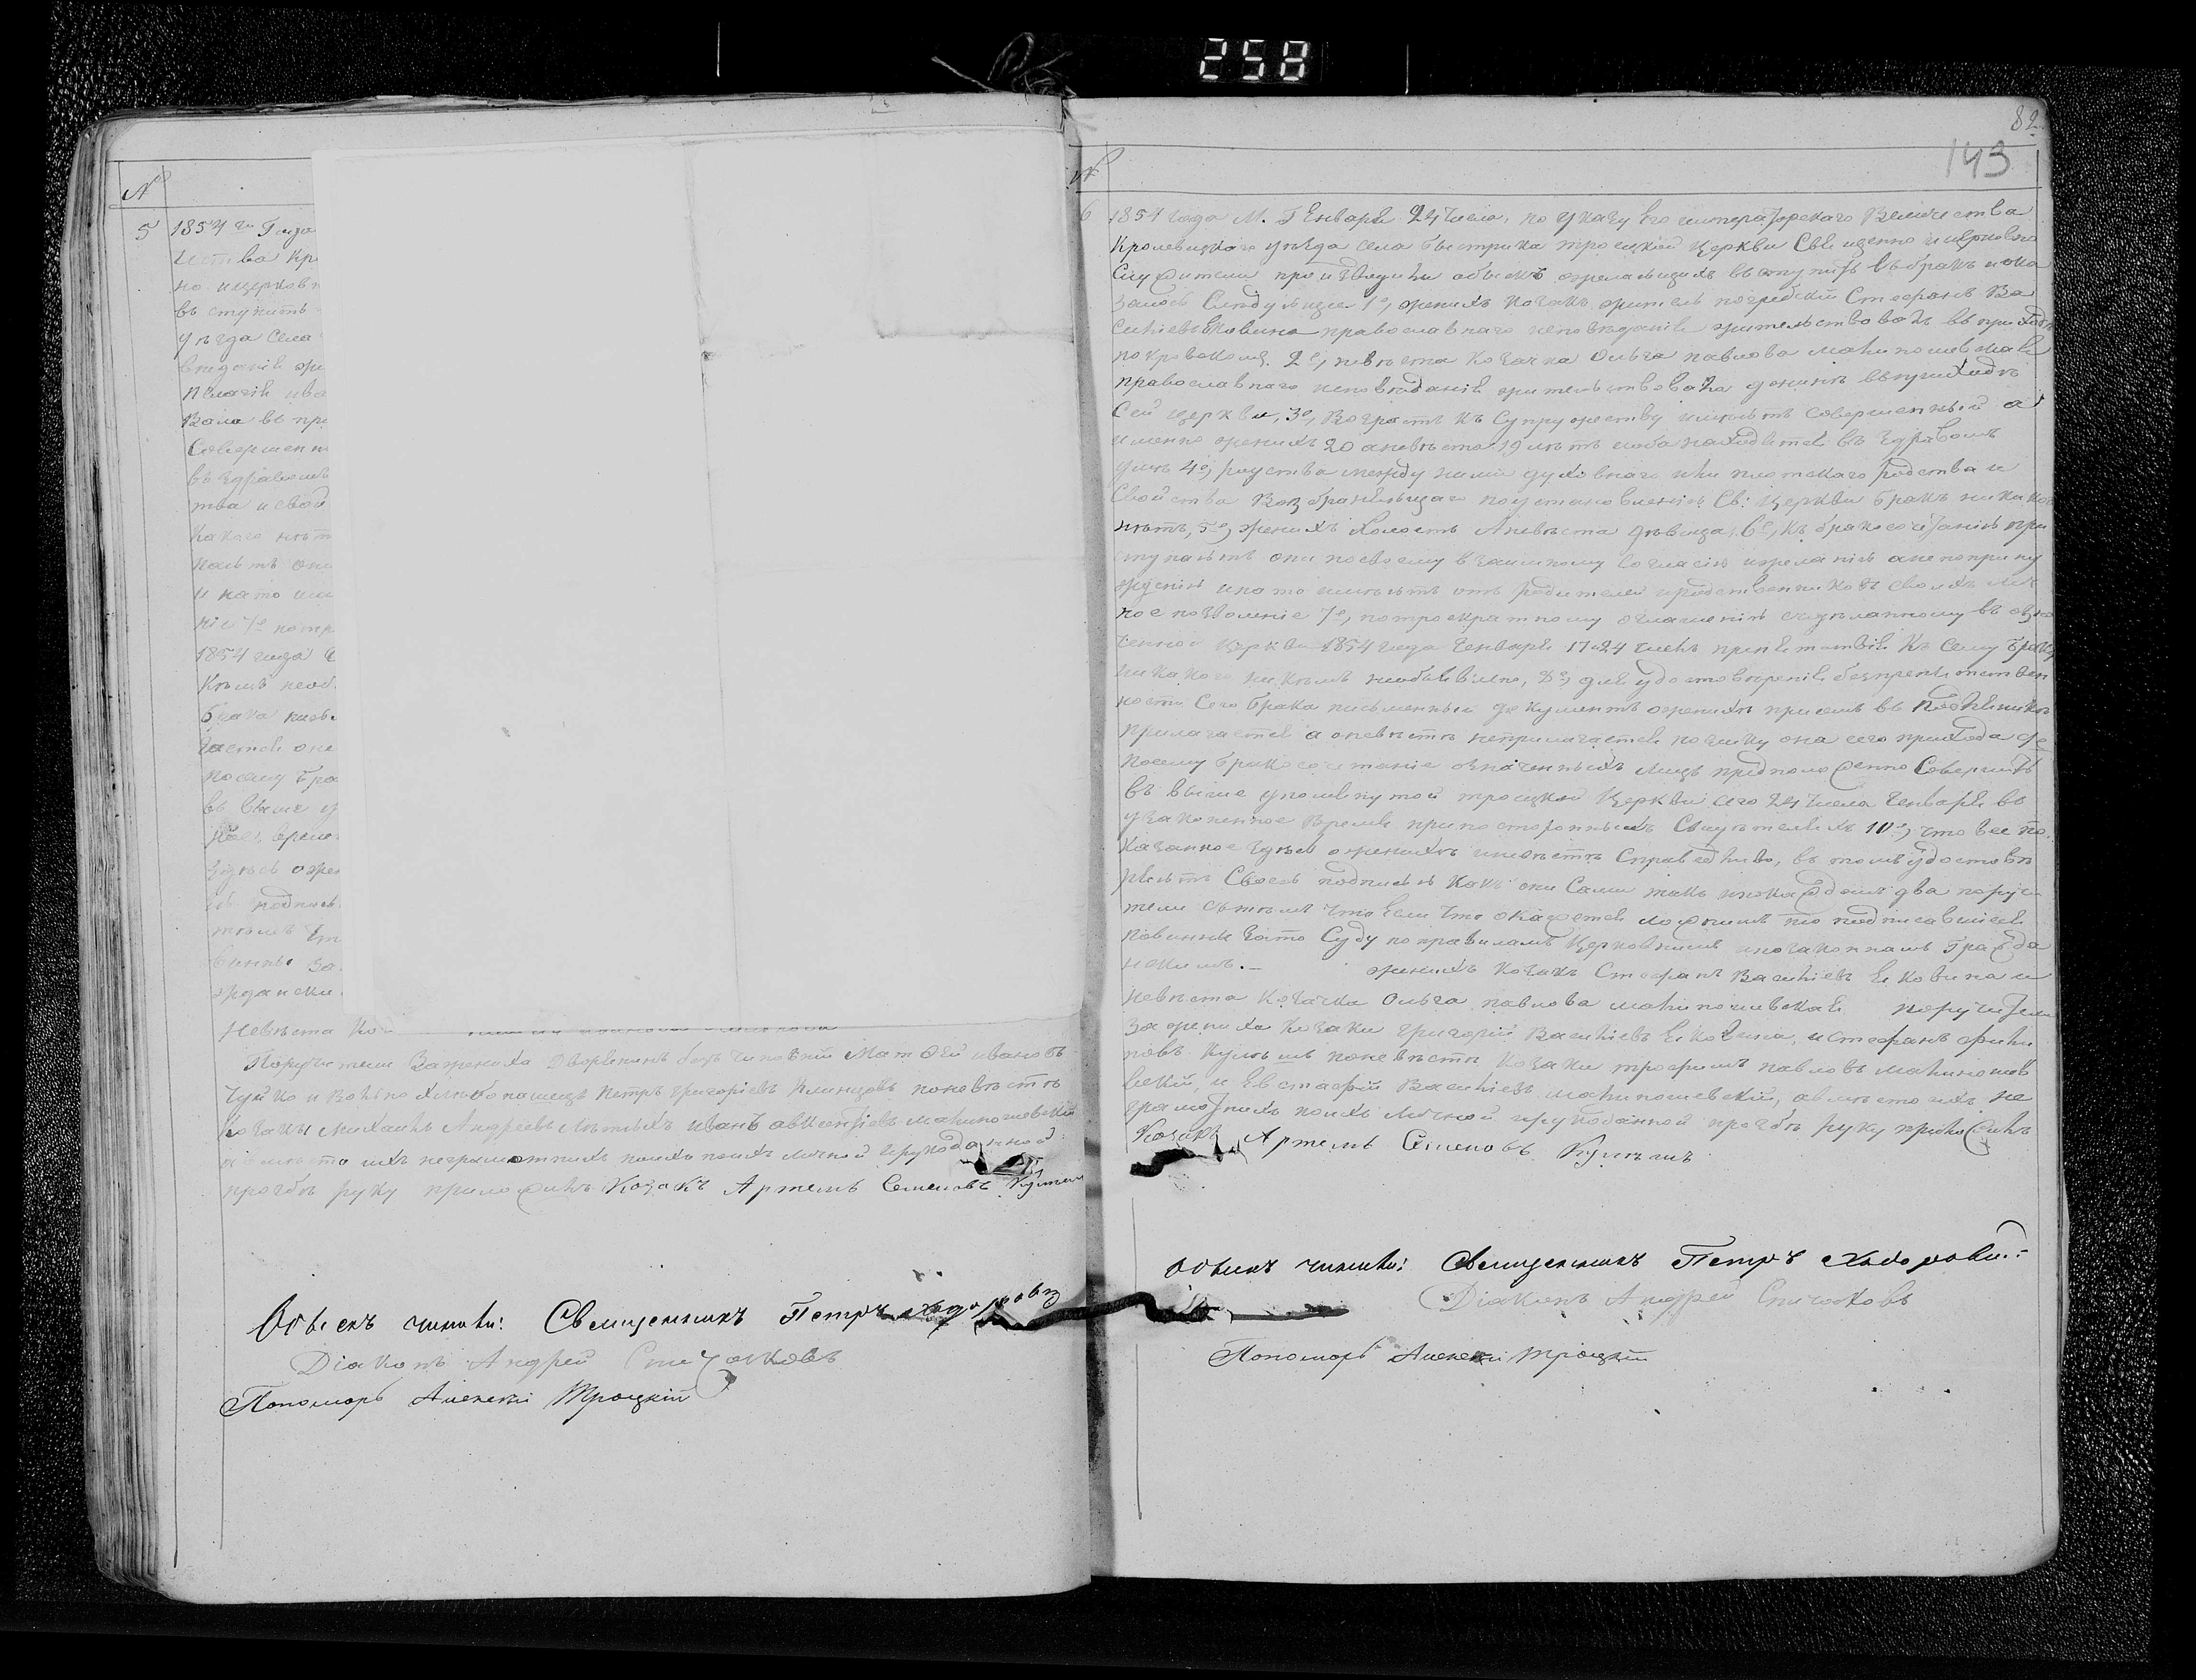 258
№
5 1854 го Генва
чества Кро
но и церковн
въ ступить
уѣзда села
вѣданія жи
Пелагія ива
Вала въ при
Совершенн
въ здравомъ
тва и свой
какого нѣтъ
паютъ они
и на то им
ніе 7е по тр
1854 года
кѣмъ необ
брака письм
гается она
посему бра
въ выше у
ное время
здѣсь о жен
подпись
тѣмъ что
винны за
ждански
Невѣста Ко
Поручители За жениха Дворянинъ безъ чиновній Матѳей ивановъ
Чуйко и вольно хлѣбопашецъ Петръ григоріевъ Климцовъ по невѣстѣ
козаки михаилъ Андреевъ иванъ авксентіевъ малиношевскій
а вмѣсто ихъ неграмотныхъ по ихъ личной и рукоданной
прозбѣ руку приложилъ Козакъ Артемъ Семеновъ Кулѣшъ
Обыскъ чинили: Священникъ Петръ
Діаконъ Андрей
Пономарь Алексій Троцкій
82
143
№
6 1854 года М. Генваря 24 числа, по указу Его императорскаго Величества
Кролевецкаго уѣзда села быстрика троицкой Церкви Священно и церковно
Служители производили обыскъ о желающихъ вступить въ бракъ и ока
залось Слѣдующее 1е, женихъ козакъ житель погребскій Стефанъ Ва
силіевъ Яковина православнаго исповѣданія жительствовалъ въ приходѣ
покровскомъ. 2е, невѣста козачка Ольга павлова малиношевская
православнаго исповѣданія жительствовала донынѣ въ приходѣ
Сей церкви, 3е, Возрастъ къ Супружеству имѣютъ совершенный а
именно женихъ 20 а невѣста 19 лѣтъ и оба находятся въ здравомъ
умѣ 4е, родства между ними духовнаго или плотскаго родства и
Свойства Возбраняющаго по установленію Св: Церкви бракъ никако
нѣтъ, 5е, женихъ Холостъ А невѣста дѣвица, 6е, къ бракосочетанію при
ступаютъ они по своему взаимному Согласію и желанію а не по прину
жденію и на то имѣютъ отъ родителей и родственниковъ своихъ
ное позволеніе 7е, по троекратному оглашенію сдѣланному въ озна
ченной Церкви 1854 года Генваря 17 и 24 числъ препятствія къ Сему браку
никакого ни кѣмъ необъявлено, 8е, для удостовѣренія безпрепятствен
ности Сего брака письменный документъ о женихѣ при семъ въ Подлинникѣ
прилагается а о невѣстѣ неприлагается поелику она сего прихода 9е
посему бракосочетаніе означенныхъ лицъ предположенно Совершить
въ выше упомянутой троицкой Церкви сего 24 числа Генваря въ
узаконенное время при посторонныхъ Свидѣтеляхъ 10е, что все по
казанное здѣсь о женихѣ и невѣстѣ Справедливо, въ томъ удостовѣ
ряютъ Своею подписью какъ они Сами такъ и по каждомъ два поручи
тели съ тѣмъ что Если Что окажется ложнымъ то подписавшіеся
повинны за то Суду по правиламъ Церковнымъ и по законнамъ Гражда
нскимъ. – женихъ козакъ Стефанъ Василіевъ Яковина и
невѣста козачка Ольга павлова малиношевская поручители
за жениха козаки григорій Василіевъ Яковина, и стефанъ фили
повъ Кулѣшъ по невѣстѣ козаки трофимъ павловъ малиношев
вскій, и Евстафій Василіевъ малиношевскій, а вмѣсто ихъ не
грамотныхъ по ихъ личной и рукоданной прозбѣ руку приложилъ
Козакъ Артемъ Семеновъ Кулѣшъ
Обыскъ чинили: Священникъ Петръ
Діаконъ Андрей
Пономарь Алексій Троцкій